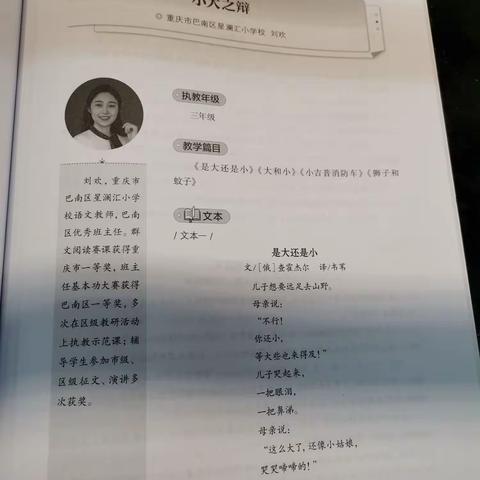 小大之辩
◎ 重庆市巴南区星澜汇小学校 刘欢
执教年级
三年级
教学篇目
《是大还是小》《大和小》《小吉普消防车》《狮子和
蚊子》
文本
/ 文本一 /
是大还是小
文/［俄］查霍杰尔 译/韦苇
儿子想要远足去山野。
母亲说：
“不行！
你还小，
等大些也来得及！”
儿子哭起来，
一把眼泪，
一把鼻涕。
母亲说：
“这么大了，还像小姑娘，
哭哭啼啼的！”
刘欢，重庆市
巴南区星澜汇小学
校语文教师，巴南
区优秀班主任。群
文阅读赛课获得重
庆市一等奖，班主
任基本功大赛获得
巴南区一等奖，多
次在区级教研活动
上执教示范课；辅
导学生参加市级、
区级征文、演讲多
次获奖。